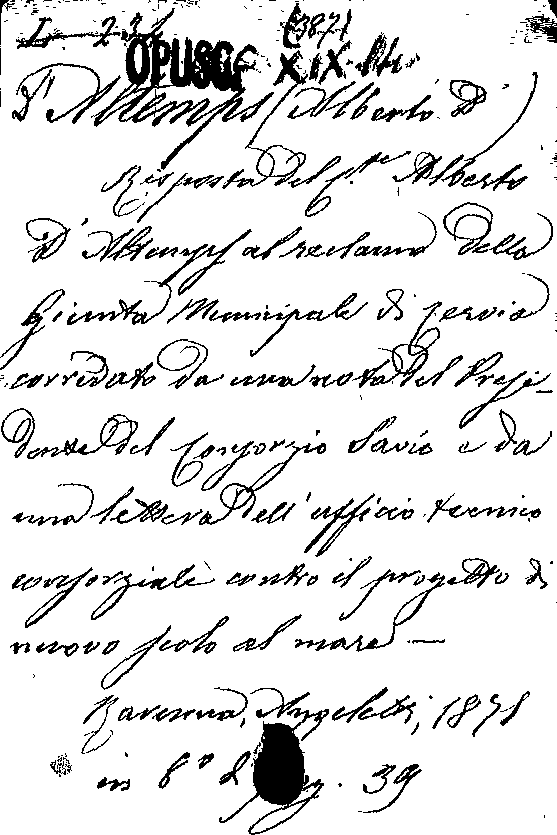 OPUSC. XIX
D'Altemps (Alberto D')
Risposta del C.te Alberto
D'Altemps al reclamo della
Giunta Municipale di Cervia
corredato da una nota del Presi-
dente del Consorzio Savio e da
una lettera dell'ufficio tecnico
consorziale contro il progetto di
nuovo scolo al mare —
Ravenna, Angeletti, 1871
in 8º pag. 39